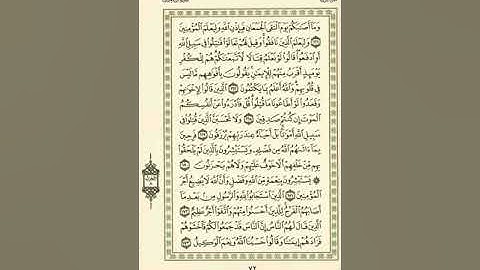 وَمَا أَصَابَكُمْ يَوْمَ الْتَقَى الْجَمْعَانِ فَبِإِذْنِ اللَّهِ وَلِيَعْلَمَ الْمُؤْمِنِينَ
﴿١٦٦﴾ وَلِيَعْلَمَ الَّذِينَ نَافَقُوا وَقِيلَ لَهُمْ تَعَالَوْا قَاتِلُوا فِي سَبِيلِ اللَّهِ
أَوِ ادْفَعُوا قَالُوا لَوْ نَعْلَمُ قِتَالًا لَاتَّبَعْنَاكُمْ هُمْ لِلْكُفْرِ
يَوْمَئِذٍ أَقْرَبُ مِنْهُمْ لِلْإِيمَانِ يَقُولُونَ بِأَفْوَاهِهِمْ مَا لَيْسَ
فِي قُلُوبِهِمْ وَاللَّهُ أَعْلَمُ بِمَا يَكْتُمُونَ ﴿١٦٧﴾ الَّذِينَ قَالُوا لِإِخْوَانِهِمْ
وَقَعَدُوا لَوْ أَطَاعُونَا مَا قُتِلُوا قُلْ فَادْرَءُوا عَنْ أَنْفُسِكُمُ
الْمَوْتَ إِنْ كُنْتُمْ صَادِقِينَ ﴿١٦٨﴾ وَلَا تَحْسَبَنَّ الَّذِينَ قُتِلُوا فِي
سَبِيلِ اللَّهِ أَمْوَاتًا بَلْ أَحْيَاءٌ عِنْدَ رَبِّهِمْ يُرْزَقُونَ ﴿١٦٩﴾ فَرِحِينَ
بِمَا آتَاهُمُ اللَّهُ مِنْ فَضْلِهِ وَيَسْتَبْشِرُونَ بِالَّذِينَ لَمْ يَلْحَقُوا
بِهِمْ مِنْ خَلْفِهِمْ أَلَّا خَوْفٌ عَلَيْهِمْ وَلَا هُمْ يَحْزَنُونَ ﴿١٧٠﴾
۞ يَسْتَبْشِرُونَ بِنِعْمَةٍ مِنَ اللَّهِ وَفَضْلٍ وَأَنَّ اللَّهَ لَا يُضِيعُ أَجْرَ
الْمُؤْمِنِينَ ﴿١٧١﴾ الَّذِينَ اسْتَجَابُوا لِلَّهِ وَالرَّسُولِ مِنْ بَعْدِ مَا
أَصَابَهُمُ الْقَرْحُ لِلَّذِينَ أَحْسَنُوا مِنْهُمْ وَاتَّقَوْا أَجْرٌ عَظِيمٌ ﴿١٧٢﴾
الَّذِينَ قَالَ لَهُمُ النَّاسُ إِنَّ النَّاسَ قَدْ جَمَعُوا لَكُمْ فَاخْشَوْهُمْ
فَزَادَهُمْ إِيمَانًا وَقَالُوا حَسْبُنَا اللَّهُ وَنِعْمَ الْوَكِيلُ ﴿١٧٣﴾
٧٢